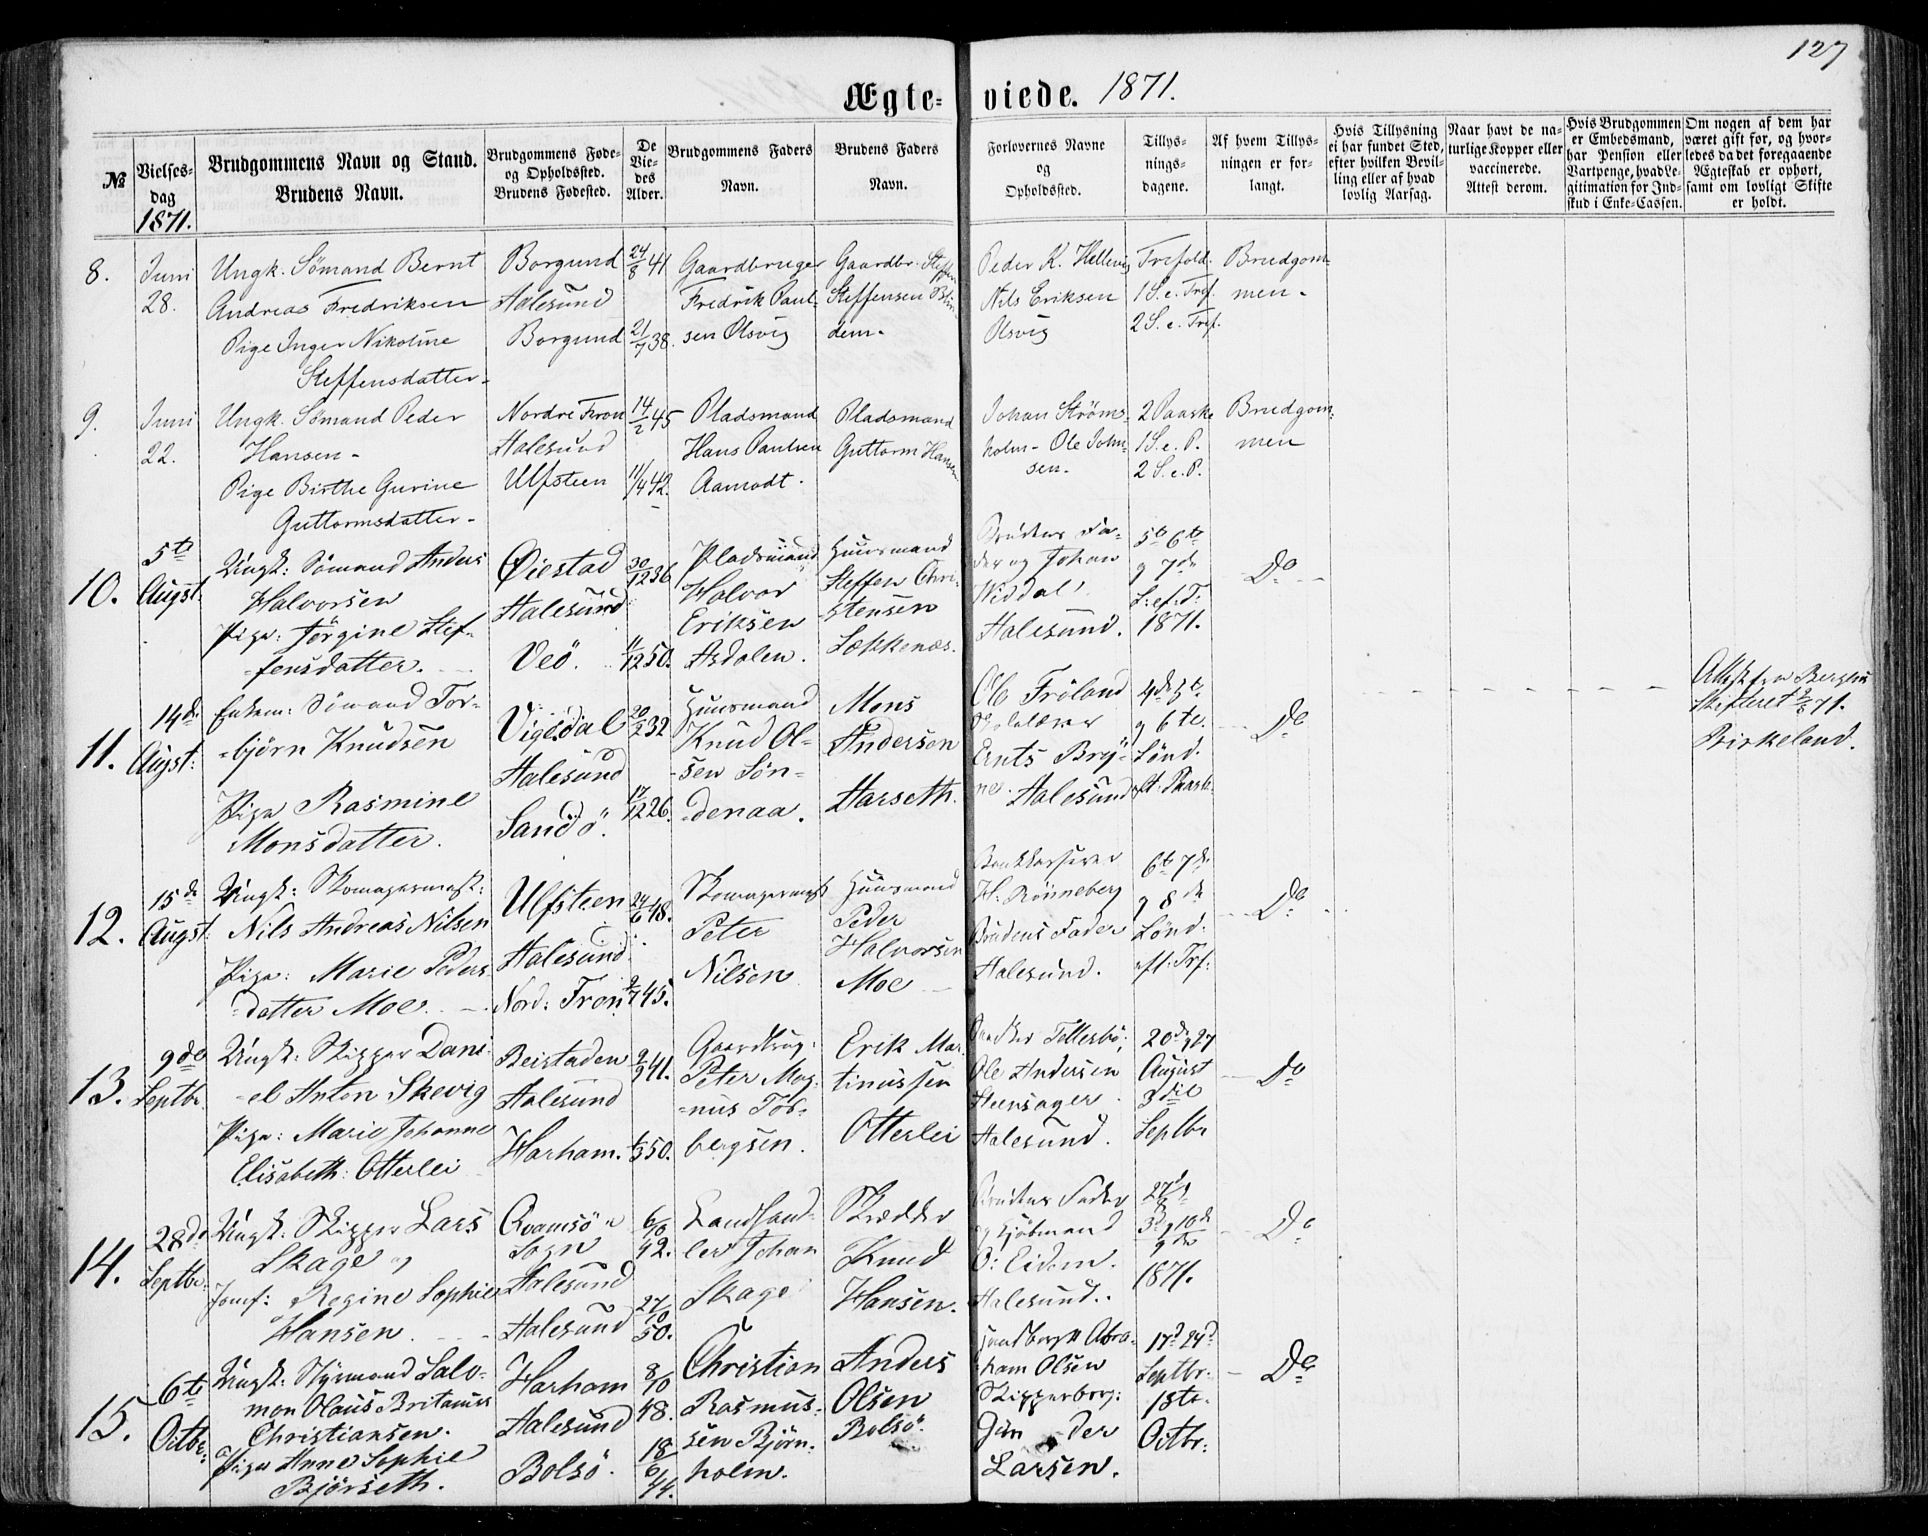 127
Ægte- viede. 1871.
№
Vielses-
dag
1871.
Brudgommens Navn og Stand.
Brudens Navn.
Brudgommens Føde-
og Opholdssted.
Brudens Fødested.
De
Vie-
des
Alder.
Brudgommens Faders
Navn.
Brudens Faders
Navn.
Forlovernes Navne
og
Opholdssted.
Tillys-
nings-
dagene.
Af hvem Tillys-
ningen er for-
langt.
Hvis Tillysning
ei har fundet Sted,
efter hvilken Bevil-
ling eller af hvad
lovlig Aarsag.
Naar havt de na-
turlige Kopper eller
vaccinerede.
Attest derom.
Hvis Brudgommen
er Embedsmand,
har Pension eller
Vartpenge, hvad Le-
gitimation for Ind-
skud i Enke-Cassen.
Om nogen af dem har
været gift før, og hvor-
ledes da det foregaaende
Ægteskab er ophørt,
samt om lovligt Skifte
er holdt.
8.
Juni
28.
Ungk. Sømand Bernt
Andreas Fredriksen
Pige Inger Nikoline
Steffensdatter-
Borgund
Aalesund
Borgund
24/8 41
21/7 38.
Gaardbruger
Fredrik Paul-
sen Olsvig
Gaardbr. Steffen
Steffensen Blin-
dem-
Peder K. Hellevig
Nils Eriksen
Olsvig
Trefold.
1 S. e. Tref.
2 S. e. Tref.
Brudgom-
men-
9.
Juni
22.
Ungk. Sømand Peder
Hansen-
Pige Birthe Gurine
Guttormsdatter-
Nordre Fron
Aalesund
Ulfsteen
14/2 45
11/4 42.
Pladsmand
Hans Paulsen
Aamodt.
Pladsmand
Guttorm Hansen
Johan Strøms-
holm- Ole John-
sen-
2 Paaske
1 S. e. P.
2 S. e. P.
Brudgom-
men
10.
5te
Augst.
Ungk: Sømand Anders
Halvorsen
Pige: Jørgine Stef-
-fensdatter.
Øiestad
Aalesund
Veö.
30/12 36
11/12 50.
Pladsmand
Halvor
Eriksen
Asdalen.
Huusmand
Steffen Chri-
stensen
Sækkenæs.
Brudens Fa-
der og Johan
Aalesund.
5te 6te
g 7de
S: ef: T:
1871.
Do
11.
14de
Augst:
Enkem: Sømand Tor-
-bjørn Knudsen
Pige Rasmine
Monsdatter.
Vigedal
Aalesund
Sandö.
20/2 32
17/12 26.
Huusmand
Knud Ol-
-sen Søn-
-denaa.
Mons
Andersen
Harseth.
Frøland
Skolelærer
Ernts Bry-
ne. Aalesund
4de 5te
g 6te
Sønd.
eft: Paask.
Do
Attest fra Bergens
Skifteret 2/8 71.
Birkeland.
12.
15de
Augst:
Ungk: Skomagermest:
Nils Andreas Nilsen
Pige: Marie Peders
-datter Moe.
Ulfsteen
Aalesund.
Nord: Fron.
24/6 48.
2/7 45.
Skomagermest
Peter
Nilsen
Huusmand
Peder
Halvorsen
Moe
Bankkasserer
H: Rönneberg
Brudens Fader
Aalesund.
6te 7de
g 8de
Sønd.
eft: Trf:
Do
13.
9de
Septbr.
Ungk: Skipper Dani-
-el Anton Skevig
Pige: Marie Johanne
Elisabeth: Otterlei
Beistaden
Aalesund
Harham.
2/9 41.
1/3 50.
Gaardbrug:
Peter Mag-
-nus Tor-
bergsen.
Erik Mar-
tinussen
Otterlei
Ole Andersen
Steensager.
Aalesund.
20de g 27
August
3die
Septbr
Do
14.
28de
Septbr.
Ungk: Skipper Lars
Skage og
Jomf: Regine Sophie
Hansen.
Qvamsö
Sogn
Aalesund
Aalesund
6/10
42.
27/10
50.
Landhand-
ler Johan
Skage
Skrædder
Knud
Hansen.
Brudens Fader
og Kjöbmand
O: Eidem.
Aalesund.
3d g 10de
1871.
Do
15.
6te
Octbr.
Ungk: Styrmand Salo-
mon Olaus Britanius
Christiansen.
og
Pige Anne Sophie
Björseth.
Harham
Aalesund
Bolsö.
8/10
48.
18/6
44.
Christian
Rasmus-
sen Björn-
holm.
Anders
Olsen
Bolsö
Abra-
ham Olsen
Skipperborg:
Larsen.
17d 24d
Septbr:
Octbr:
Do